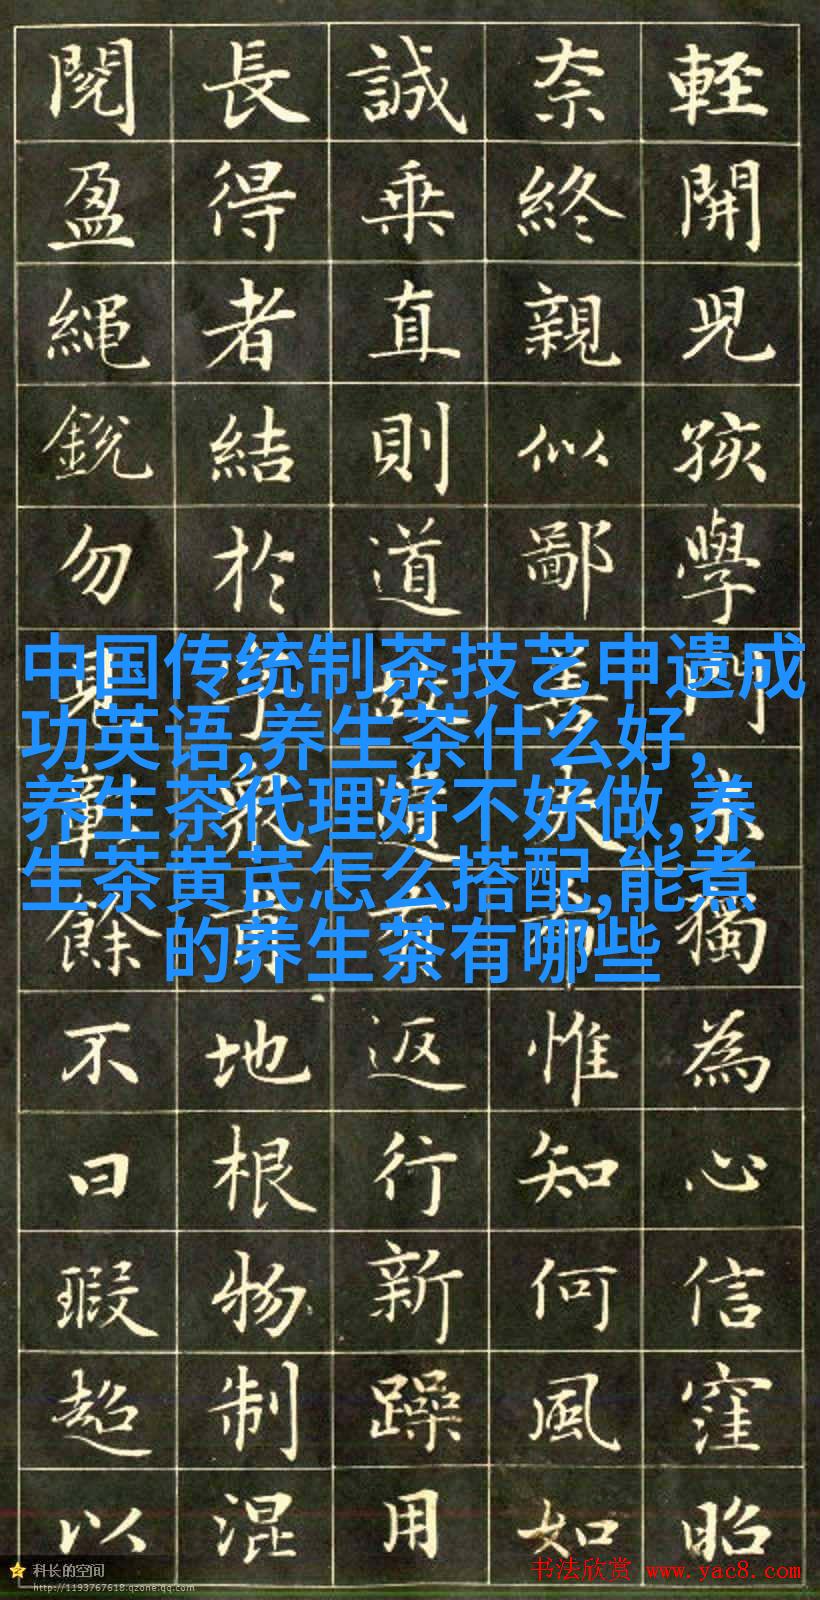 閱 長 誠 奈 輊
盈 得 乘 終 開
繩 者 直 親 児
銳 結 則 似 孩
勿 於 道 鄙 學
見 善 門
中国传统制茶技艺申遗成
功英语,养生茶什么好,
养生茶代理好不好做,养
生茶黄芪怎么搭配,能煮
的养生茶有哪些
章 衆 遺 夫 宗
餘 而 獨
不 地 返 惟 為
曰 根 行 知 心
瑕 物 新 何 信
超 制 躁 風 窪
以 混 用 如 昭
科长的空间
http://1193767618.qzone.qq.com
书法欣赏 www.yac8.com